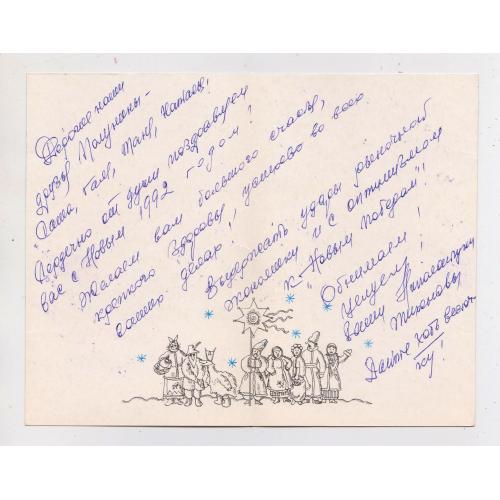 Дорогие наши
друзья Полунины -
Саша, Галя, Таня, Наташа!
Сердечно от души поздравляем
вас с Новым 1992 годом!
Желаем вам большого счастья,
крепкого здоровья, успехов во всех
ваших делах!
Выдержать удары рыночной
экономики и с оптимизмом
к "Новым победам"!
Обнимаем
целуем!
ваши Николай
Тихоновы
Дайте хоть весточ-
ку!